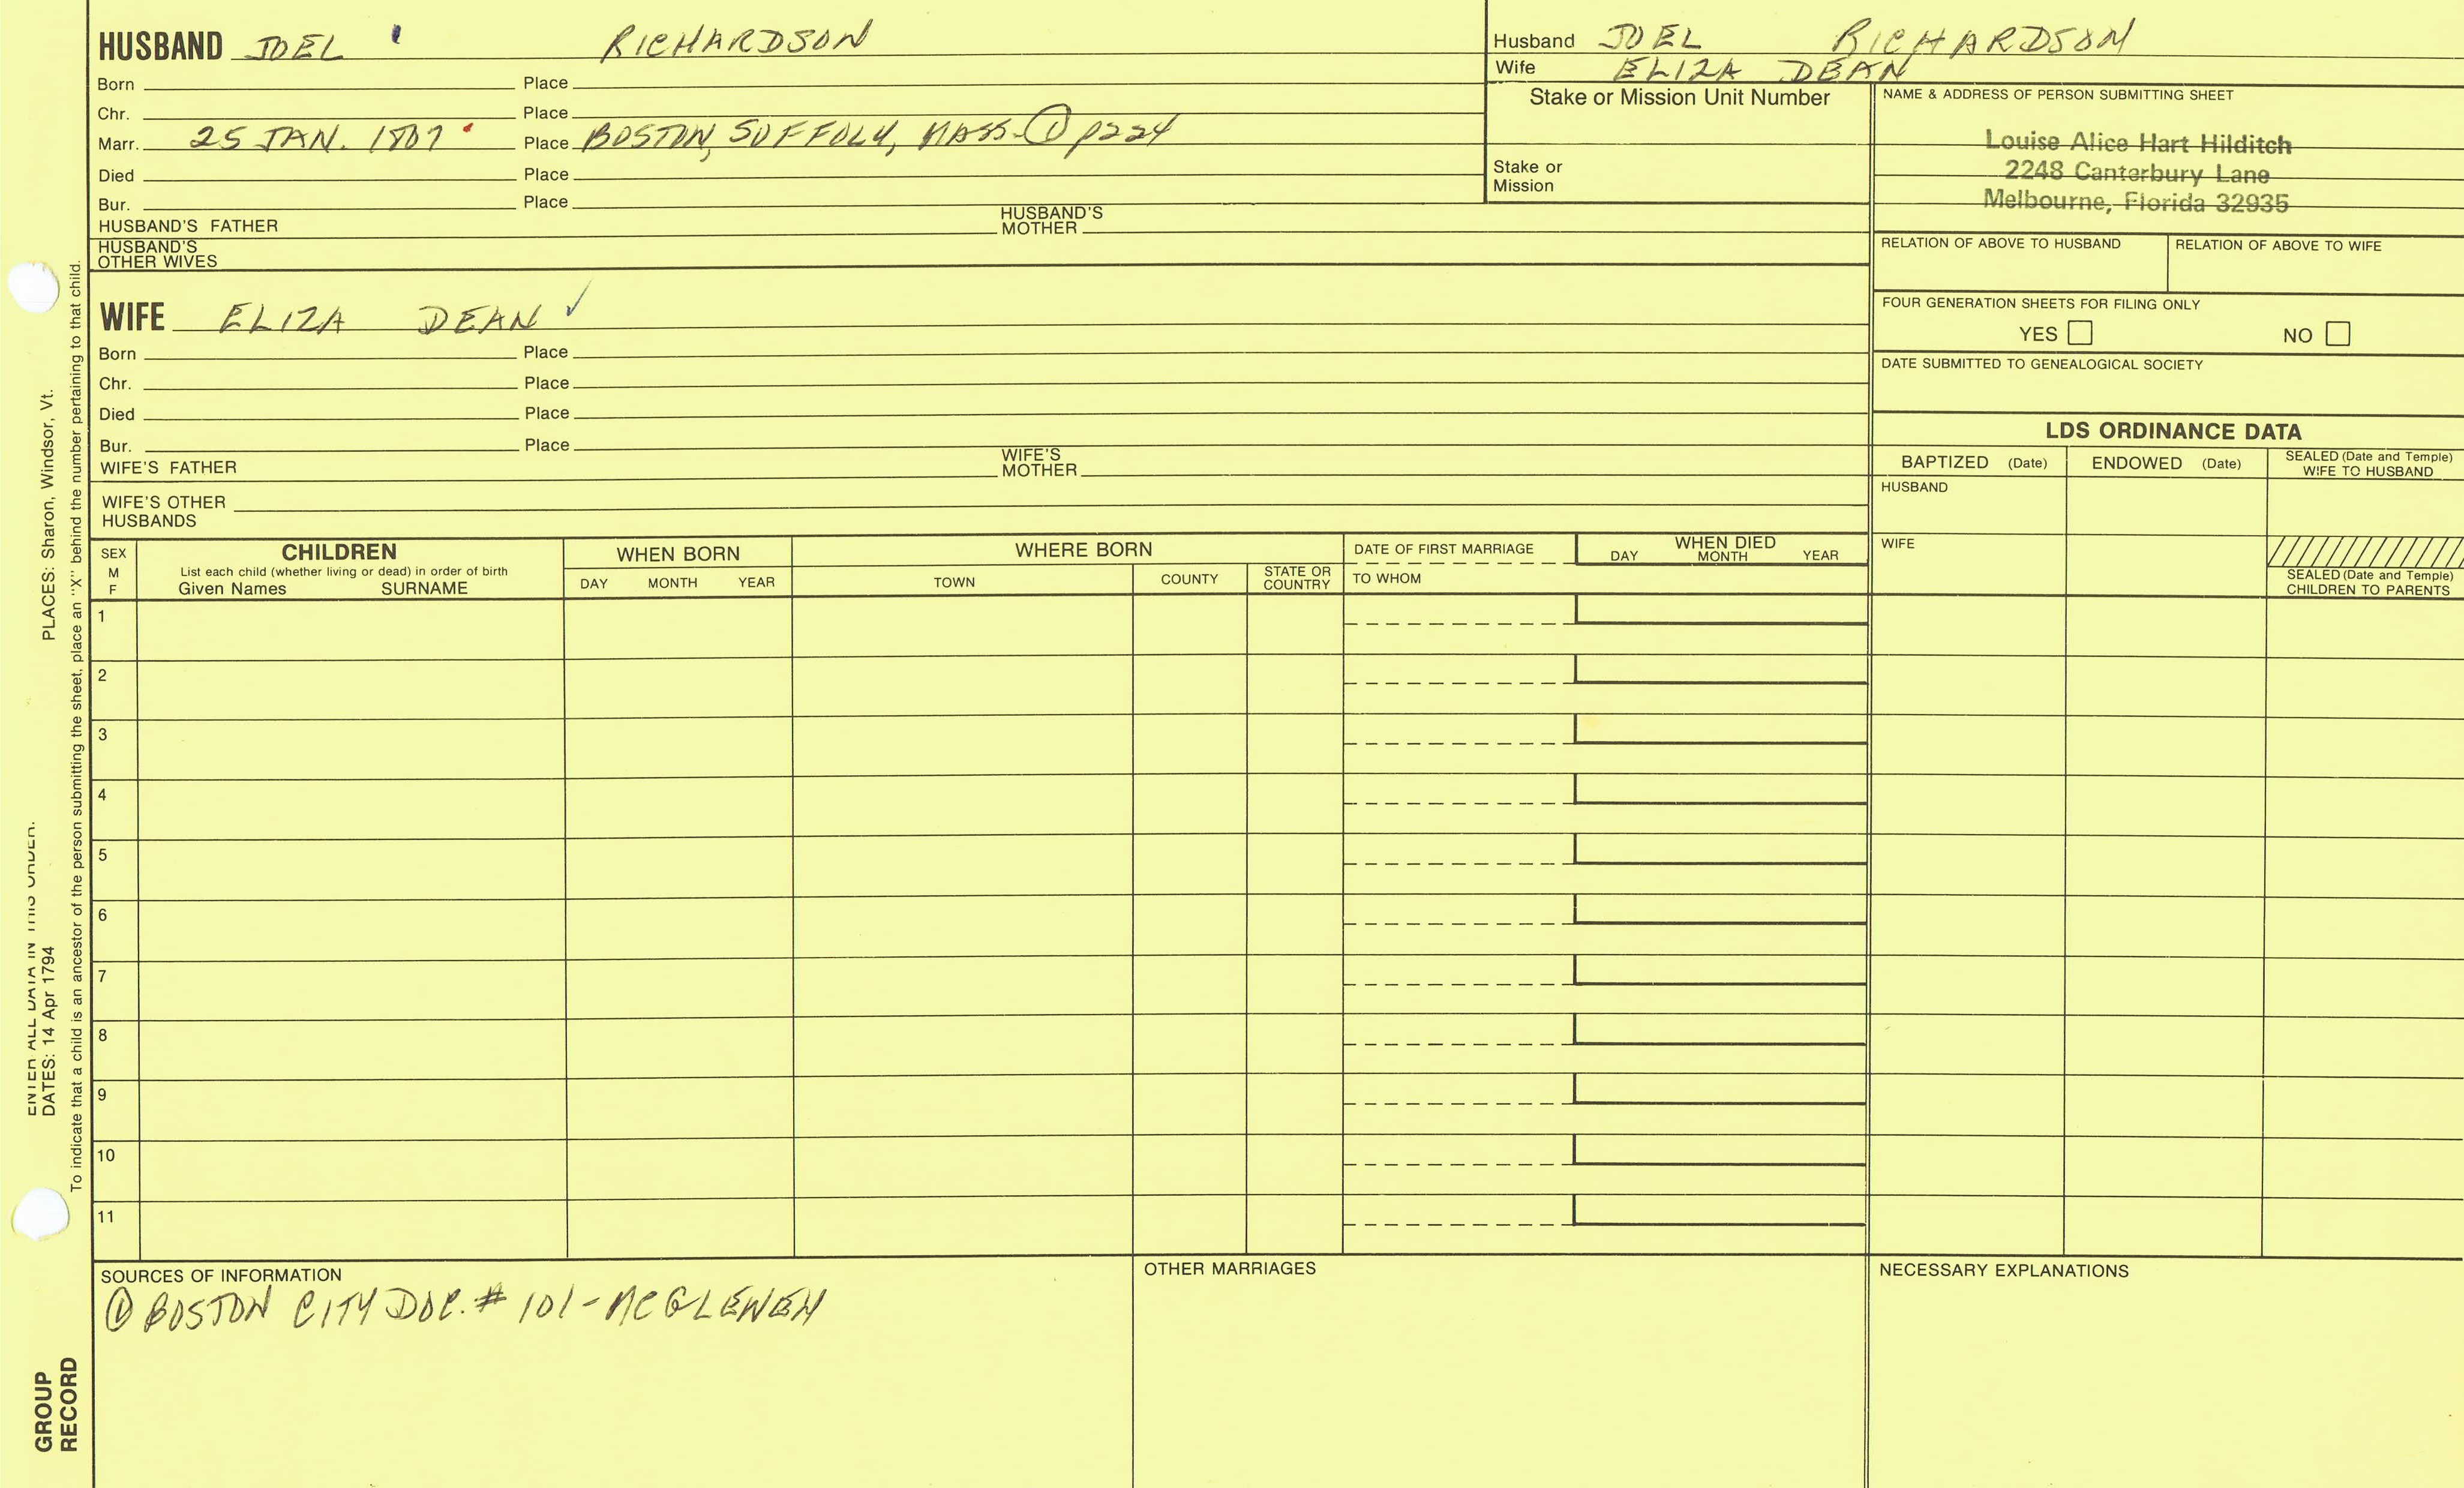 HUSBAND JOEL RICHARDSON
Born Place
Chr. Place
Marr. 25 JAN. 1807 Place BOSTON, SUFFOLK, MASS. ① p224
Died Place
Bur. Place
HUSBAND'S FATHER HUSBAND'S MOTHER
HUSBAND'S OTHER WIVES
WIFE ELIZA DEAN ✓
Born Place
Chr. Place
Died Place
Bur. Place
WIFE'S FATHER WIFE'S MOTHER
WIFE'S OTHER HUSBANDS
Husband JOEL RICHARDSON
Wife ELIZA DEAN
Stake or Mission Unit Number
Stake or Mission
NAME & ADDRESS OF PERSON SUBMITTING SHEET
Louise Alice Hart Hilditch
2248 Canterbury Lane
Melbourne, Florida 32935
RELATION OF ABOVE TO HUSBAND RELATION OF ABOVE TO WIFE
FOUR GENERATION SHEETS FOR FILING ONLY
YES NO
DATE SUBMITTED TO GENEALOGICAL SOCIETY
LDS ORDINANCE DATA
BAPTIZED (Date) ENDOWED (Date) SEALED (Date and Temple) WIFE TO HUSBAND
HUSBAND
WIFE
SEALED (Date and Temple) CHILDREN TO PARENTS
SEX M F
CHILDREN
List each child (whether living or dead) in order of birth
Given Names SURNAME
WHEN BORN
DAY MONTH YEAR
WHERE BORN
TOWN COUNTY STATE OR COUNTRY
DATE OF FIRST MARRIAGE
TO WHOM
WHEN DIED
DAY MONTH YEAR
1
2
3
4
5
6
7
8
9
10
11
SOURCES OF INFORMATION
① BOSTON CITY DOC. # 101 - MCGLENEN
OTHER MARRIAGES
NECESSARY EXPLANATIONS
ENTER ALL DATA IN THIS ORDER.
DATES: 14 Apr 1794 PLACES: Sharon, Windsor, Vt.
To indicate that a child is an ancestor of the person submitting the sheet, place an "X" behind the number pertaining to that child.
GROUP
RECORD